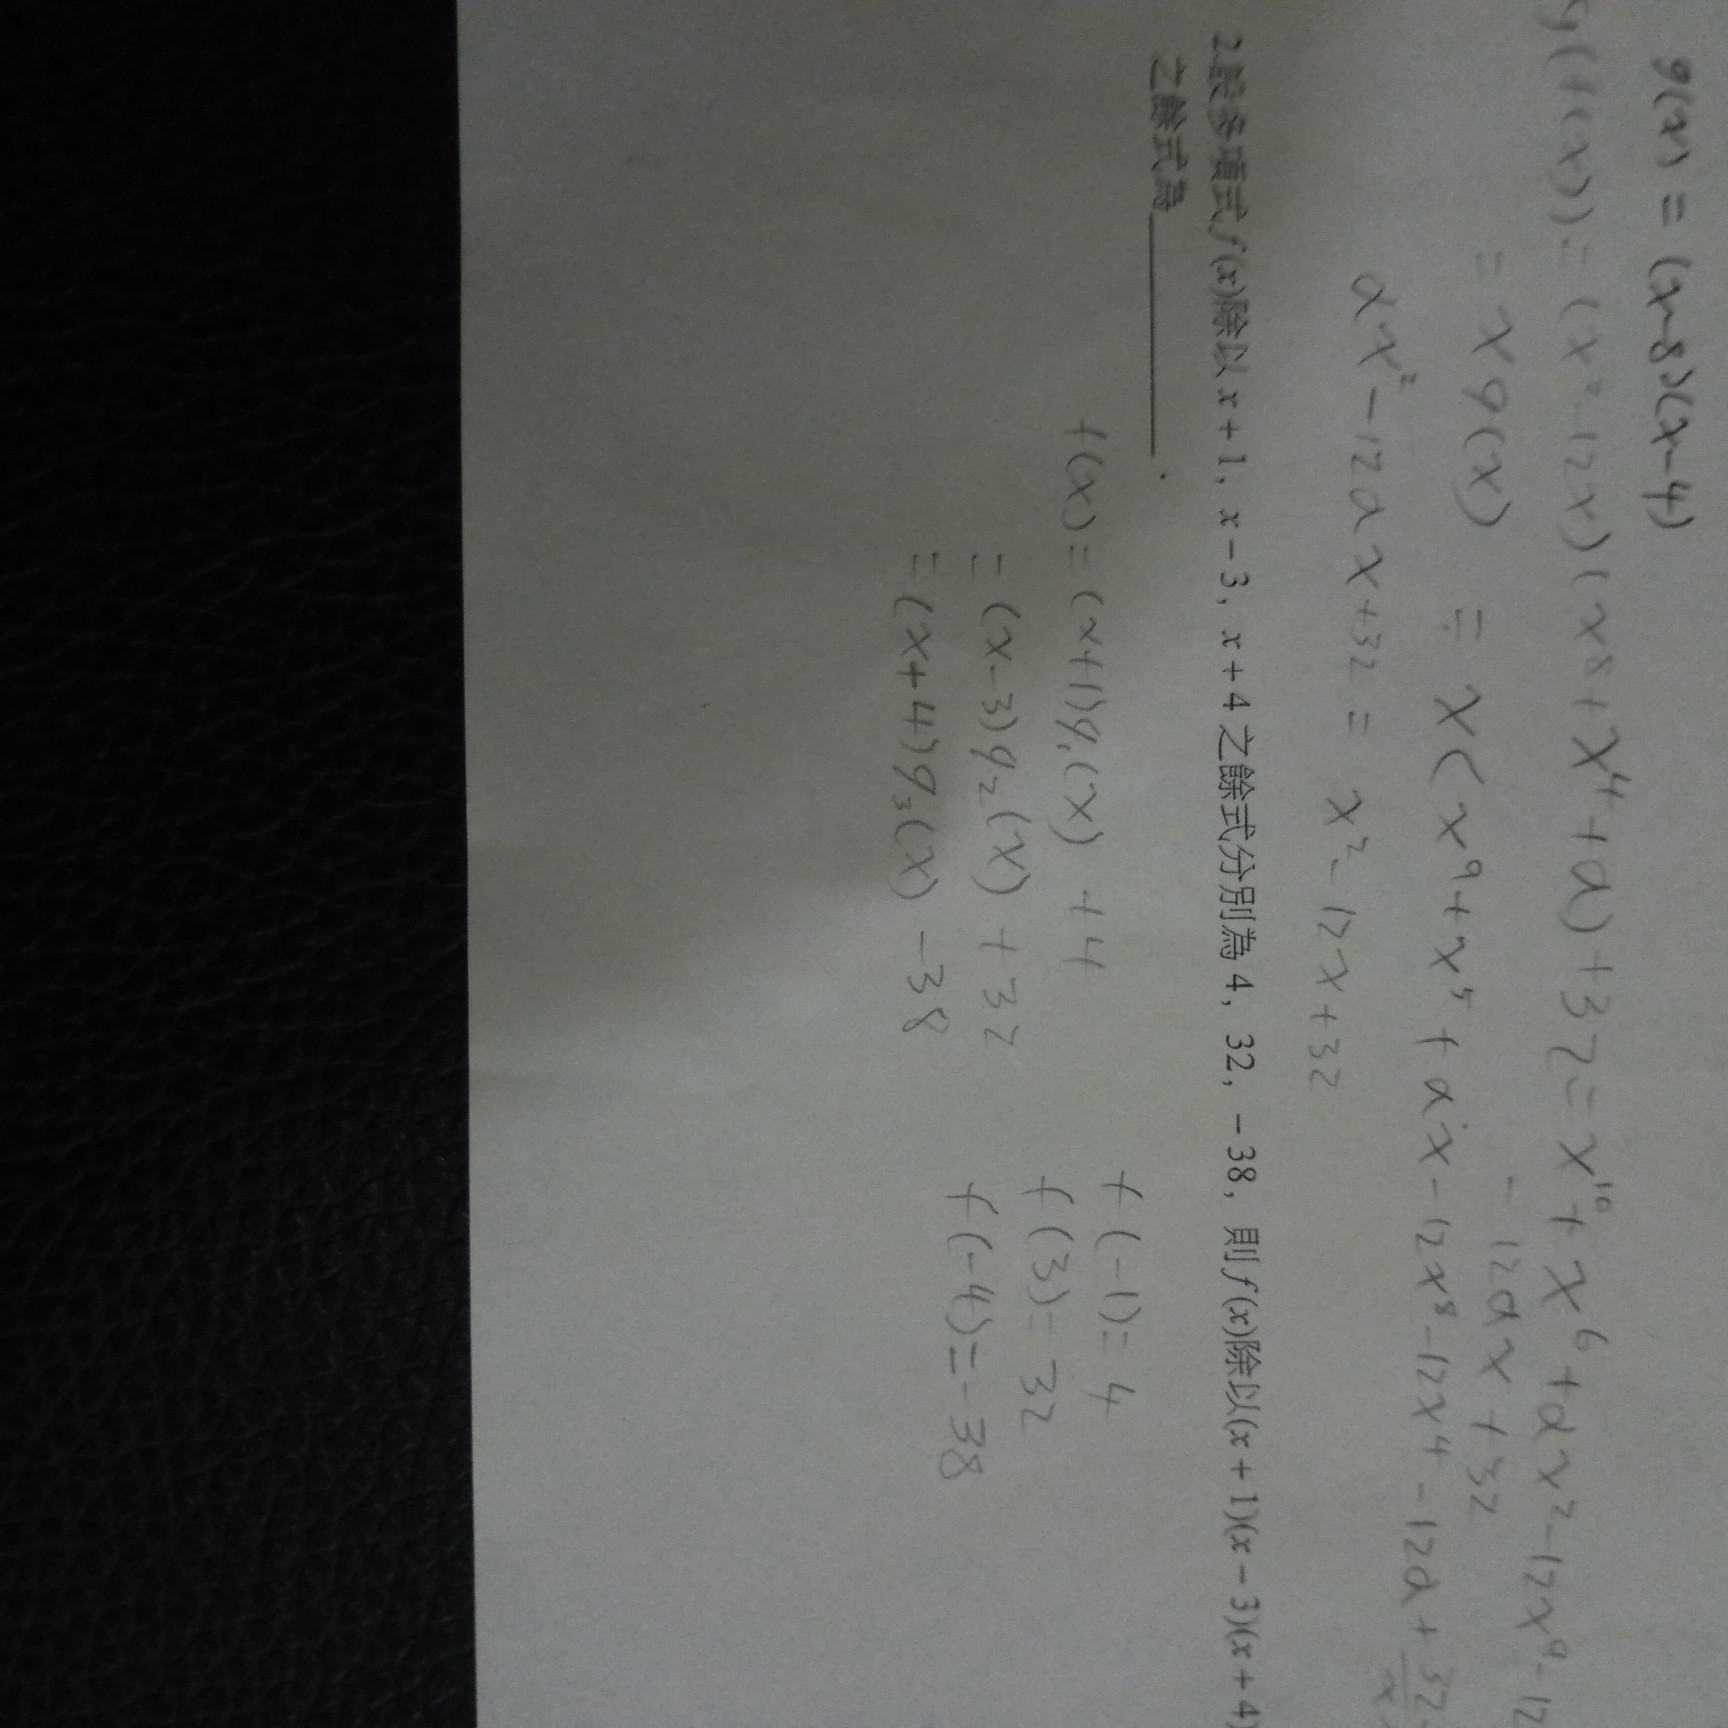 g(x) = (x-8)(x-4)
g(f(x)) = (x²-12x)(x⁸+x⁴+a)+32 = x¹⁰+x⁶+ax²-12x⁹-12
-12ax+32
= xg(x) = x(x⁹+x⁵+ax-12x⁸-12x⁴-12a+32/x
ax²-12ax+32 = x²-12x+32
2.設多項式f(x)除以x+1, x-3, x+4之餘式分別為4, 32, -38, 則f(x)除以(x+1)(x-3)(x+4)
之餘式為______.
f(x) = (x+1)q₁(x) +4
= (x-3)q₂(x) +32
= (x+4)q₃(x) -38
f(-1)=4
f(3)=32
f(-4)=-38